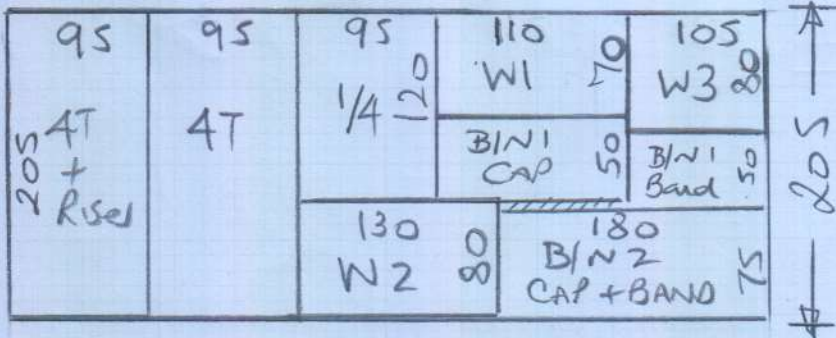 95
205
4T
+
Riser
95
4T
95
1/4
120
110
W1
70
105
W3
80
B/N1
CAP
50
B/N1
Band
50
130
W2
80
180
B/N2
CAP + BAND
75
205